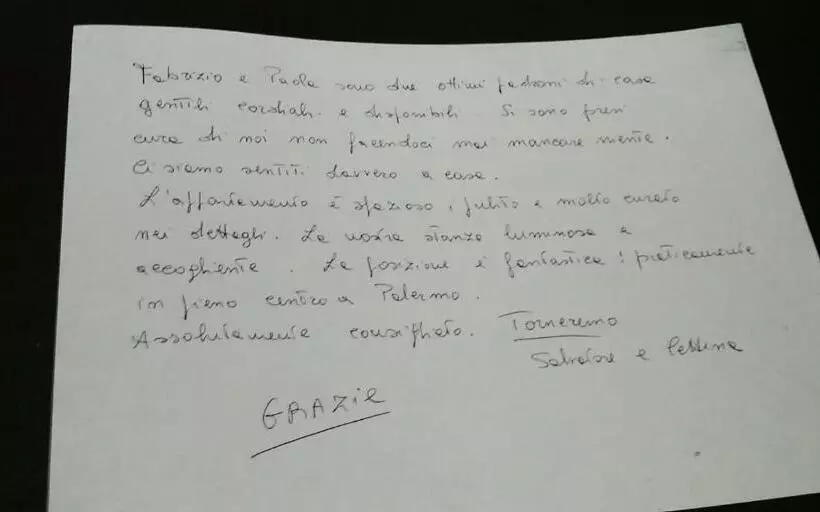 Fabrizio e Paola sono due ottimi padroni di casa
gentili cordiali e disponibili. Si sono presi
cura di noi non facendoci mai mancare niente.
Ci siamo sentiti davvero a casa.
L'appartamento è spazioso, pulito e molto curato
nei dettagli. La nostra stanza luminosa e
accogliente. La posizione è fantastica: praticamente
in pieno centro a Palermo.
Assolutamente consigliato. Torneremo
Salvatore e
GRAZIE